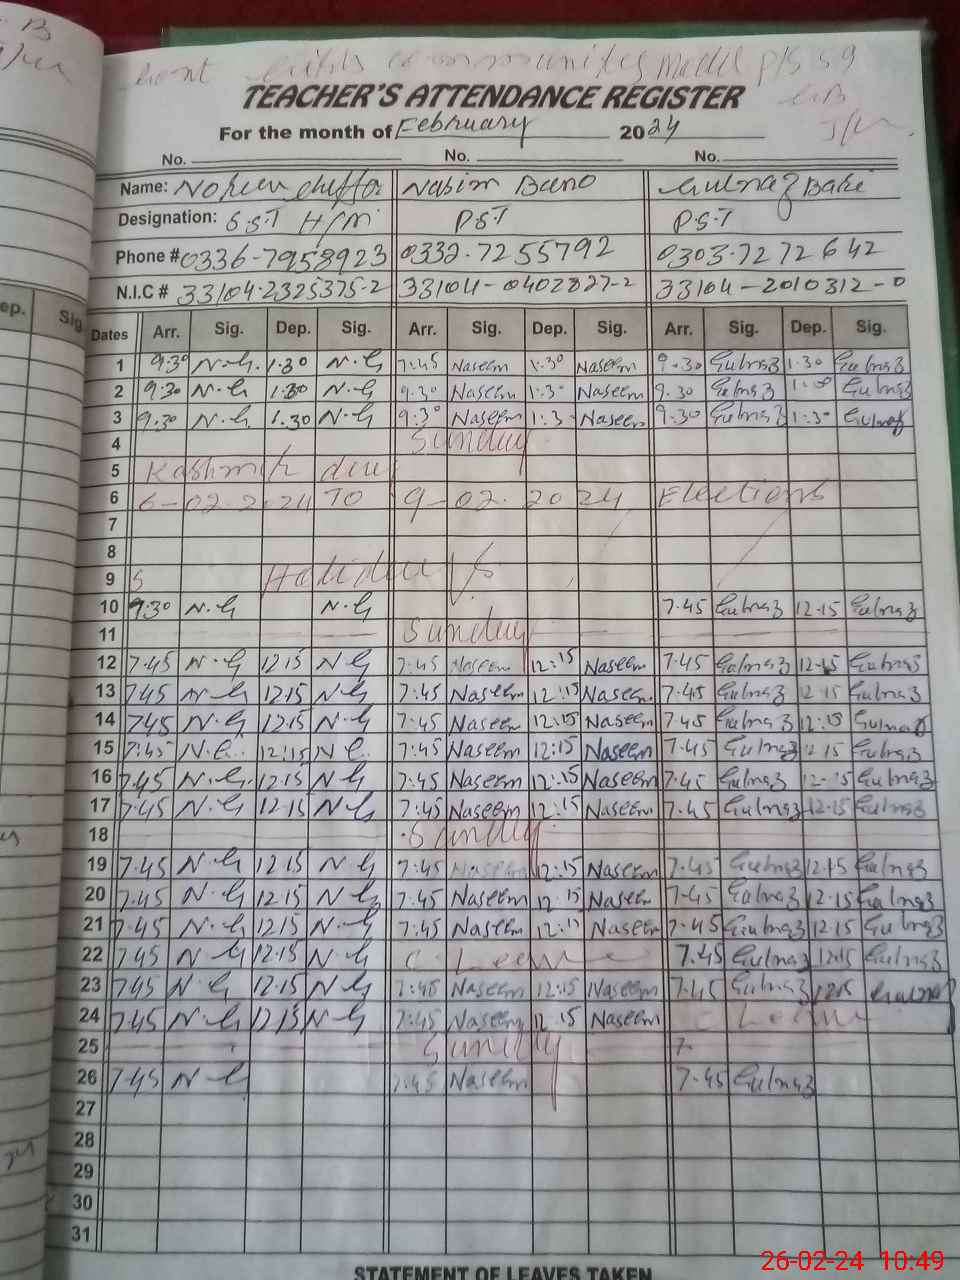 B
Govt Girls community Model P/S 59
GB
TEACHER'S ATTENDANCE REGISTER
J/W
For the month of February 2024
No. No. No.
Name: Noreen Nasim Bano Gulnaz Babi
Designation: S.S.T H/M P.S.T P.S.T
Phone # 0336-7958923 0332-7255792 0303-7272642
N.I.C # 33104-2325375-2 33104-0402827-2 33104-2010312-0
Dates Arr. Sig. Dep. Sig. Arr. Sig. Dep. Sig. Arr. Sig. Dep. Sig.
ep. Sig.
1 9:30 N.G. 1:30 N.G 7:45 Naseem 1:30 Naseem 9.30 Gulnaz 1.30 Gulnaz
2 9:30 N.G 1:30 N.G 9.30 Naseem 1:30 Naseem 9.30 Gulnaz Gulnaz
3 9:30 N.G 1.30 N.G 9:30 Naseem 1:3 Naseem 9:30 Gulnaz 1:30 Gulnaz
4 Sunday
5 Kashmir day
6 6-02-2024 TO 9-02-2024 Elections
7
8
9 Holiday
10 9:30 N.G N.G 7.45 Gulnaz 12.15 Gulnaz
11 Sunday
12 7.45 N.G 12.15 N.G 7:45 Naseem 12:15 Naseem 7.45 Gulnaz 12.15 Gulnaz
13 7.45 N.G 12.15 N.G 7:45 Naseem 12:15 Naseem. 7.45 Gulnaz 12.15 Gulnaz
14 7.45 N.G 12.15 N.G 7:45 Naseem 12:15 Naseem 7.45 Gulnaz 12:15 Gulnaz
15 7:45 N.G. 12:15 N G. 7:45 Naseem 12:15 Naseem 7.45 Gulnaz 12.15 Gulnaz
16 7.45 N.G. 12.15 N.G 7:45 Naseem 12:15 Naseem 7.45 Gulnaz 12.15 Gulnaz
17 7.45 N.G 12.15 N.G 7:45 Naseem 12:15 Naseem 7.45 Gulnaz 12.15 Gulnaz
18 Sunday
19 7.45 N.G 12.15 N.G 7:45 Naseem 12:15 Naseem 7.45 Gulnaz 12.15 Gulnaz
20 7.45 N.G 12.15 N.G 7:45 Naseem 12:15 Naseem 7.45 Gulnaz 12.15 Gulnaz
21 7.45 N.G 12.15 N.G 7:45 Naseem 12:15 Naseem 7.45 Gulnaz 12.15 Gulnaz
22 7.45 N.G 12.15 N.G C. Leave 7.45 Gulnaz 12.15 Gulnaz
23 7.45 N.G 12.15 N.G 7:45 Naseem 12:15 Naseem 7.45 Gulnaz 12.15 Gulnaz
24 7.45 N.G 12.15 N.G 7:45 Naseem 12.15 Naseem C Leave
25 Sunday 7.
26 7.45 N.G 7:45 Naseem 7.45 Gulnaz
27
28
29
30
31
26-02-24 10:49
STATEMENT OF LEAVES TAKEN